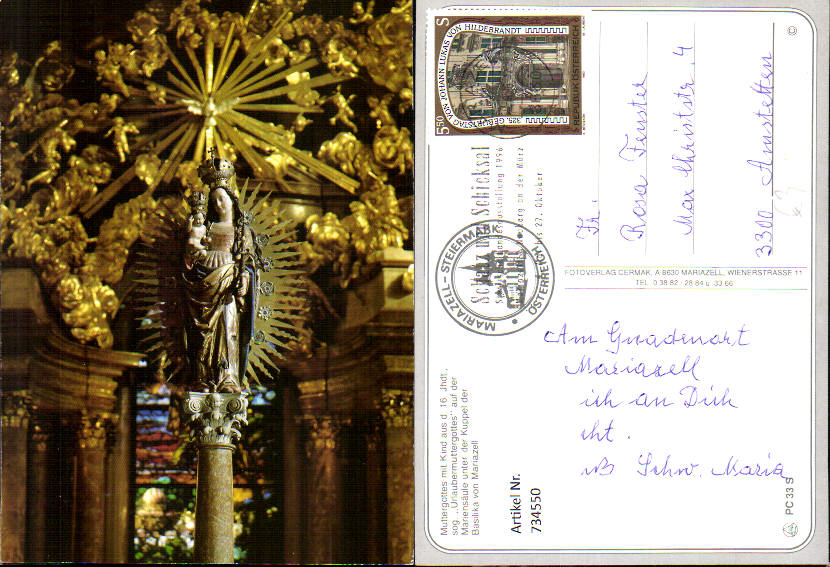 5.50 S
325. GEBURTSTAG VON JOHANN LUKAS VON HILDEBRANDT
REPUBLIK ÖSTERREICH
Schatz und Schicksal
Landesausstellung 1996
an der Mürz
bis 27. Oktober
MARIAZELL – STEIERMARK
ÖSTERREICH
Fr.
Rosa Fenster
Max Christstr. 4
3300 Amstetten
©
FOTOVERLAG CERMAK, A-8630 MARIAZELL, WIENERSTRASSE 11
TEL. 0 38 82 / 28 84 u. 33 66
Am Gnadenort
Mariazell
ich an Dich
Schw. Maria
Muttergottes mit Kind aus d. 16. Jhdt.,
sog. „Urlaubermuttergottes" auf der
Mariensäule unter der Kuppel der
Basilika von Mariazell
Artikel Nr.
734550
PC 33 S